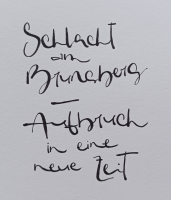 Schlacht
am
Brunsberg
–
Aufbruch
in eine
neue Zeit